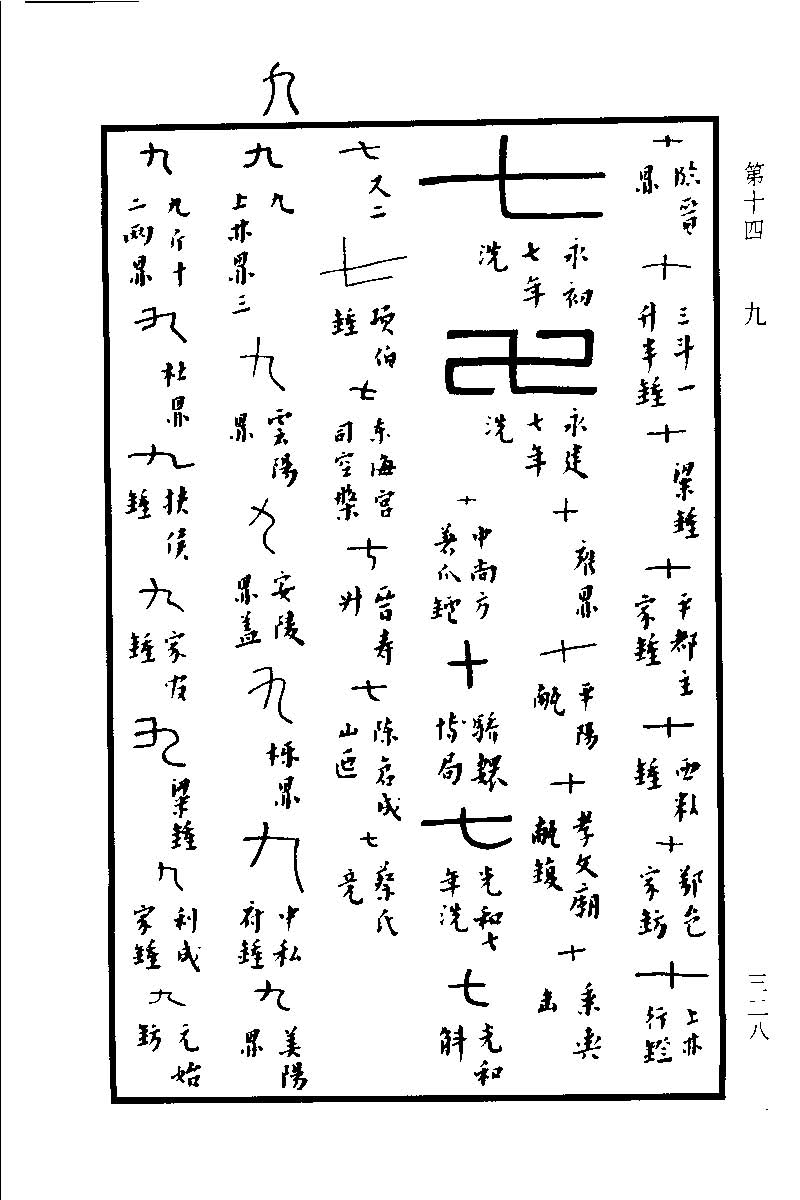 第十四 九
三二八
九
十 臨晉鼎
十 三斗一升半鍾
十 梁鍾
十 平都主家鍾
十 鍾
十 鄭邑家鈁
十 上林行鐙
七 永初七年洗
七 永建七年洗
十 雍鼎
十 平陽甗
十 孝文廟甗鍑
十 乘輿
十 中尚方
十 博局
七 光和七年洗
七 光和斛
七 又二
七 項伯鍾
七 東海宮司空槃
七 晉壽升
七 陳
七 蔡氏竟
九 九上林鼎三
九 雲陽鼎
九 安陵鼎蓋
九 櫟鼎
九 中私府鍾
九 美陽鼎
九 九斤十二兩鼎
九 杜鼎
九 扶侯鍾
九 家官鍾
九 梁鍾
九 利成家鍾
九 元始鈁